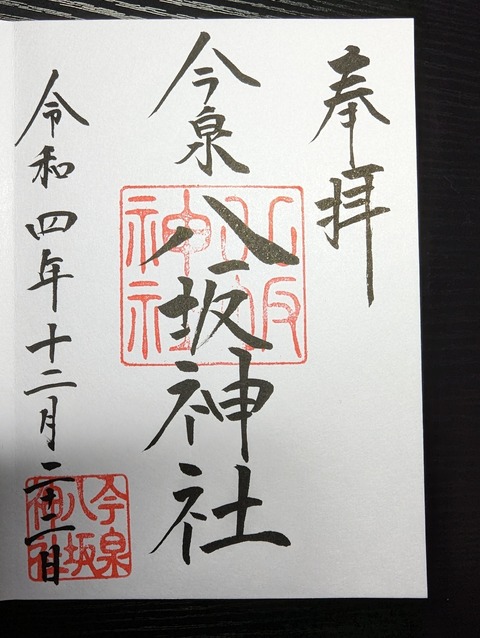 奉拝
今泉
八坂神社
八坂
神社
令和四年十二月
今泉
八坂
神社